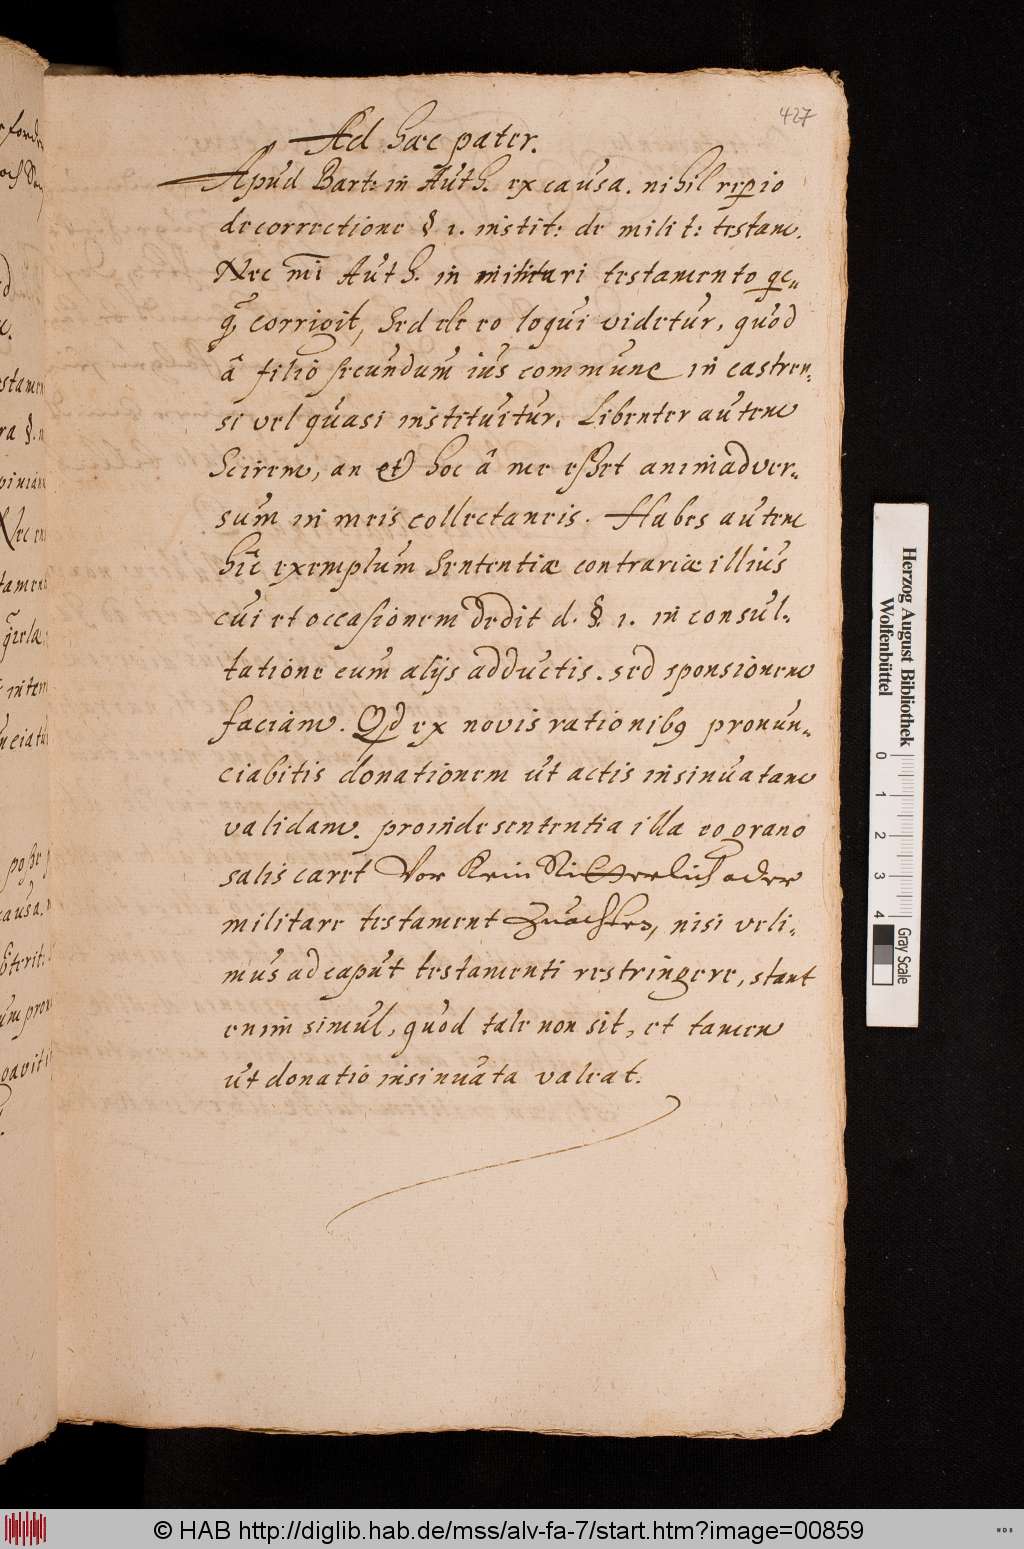 427
Ad haec pater.
Apud Bart: in Auth. ex causa. nihil repio
de correctione § 1. instit: de milit: testam.
Nec mi Auth. in militari testamento qc-
corrigit, Sed de eo loqui videtur, quod
â filio secundum ius commune in castren-
si vel quasi instituitur. Libenter autem
Scirem, an et hoc â me esset animadver-
sum in meis collectaneis. Habes autem
hîc exemplum Sententiae contrariae illius
cui et occasionem dedit d. §. 1. in consul-
tatione cum alijs adductis. sed sponsionem
faciam. Qd ex novis rationibq pronun-
ciabitis donationem ut actis insinuatam
validam. proinde sententia illa eo grano
salis caret Vor kein Ritterlich oder
militare testament zuachten, nisi veli-
mus ad caput testamenti restringere, stant
enim simul, quod tale non sit, et tamen
ut donatio insinuata valeat.
pater
causa.
Herzog August Bibliothek
Wolfenbüttel
0 1 2 3 4
Gray Scale
© HAB http://diglib.hab.de/mss/alv-fa-7/start.htm?image=00859